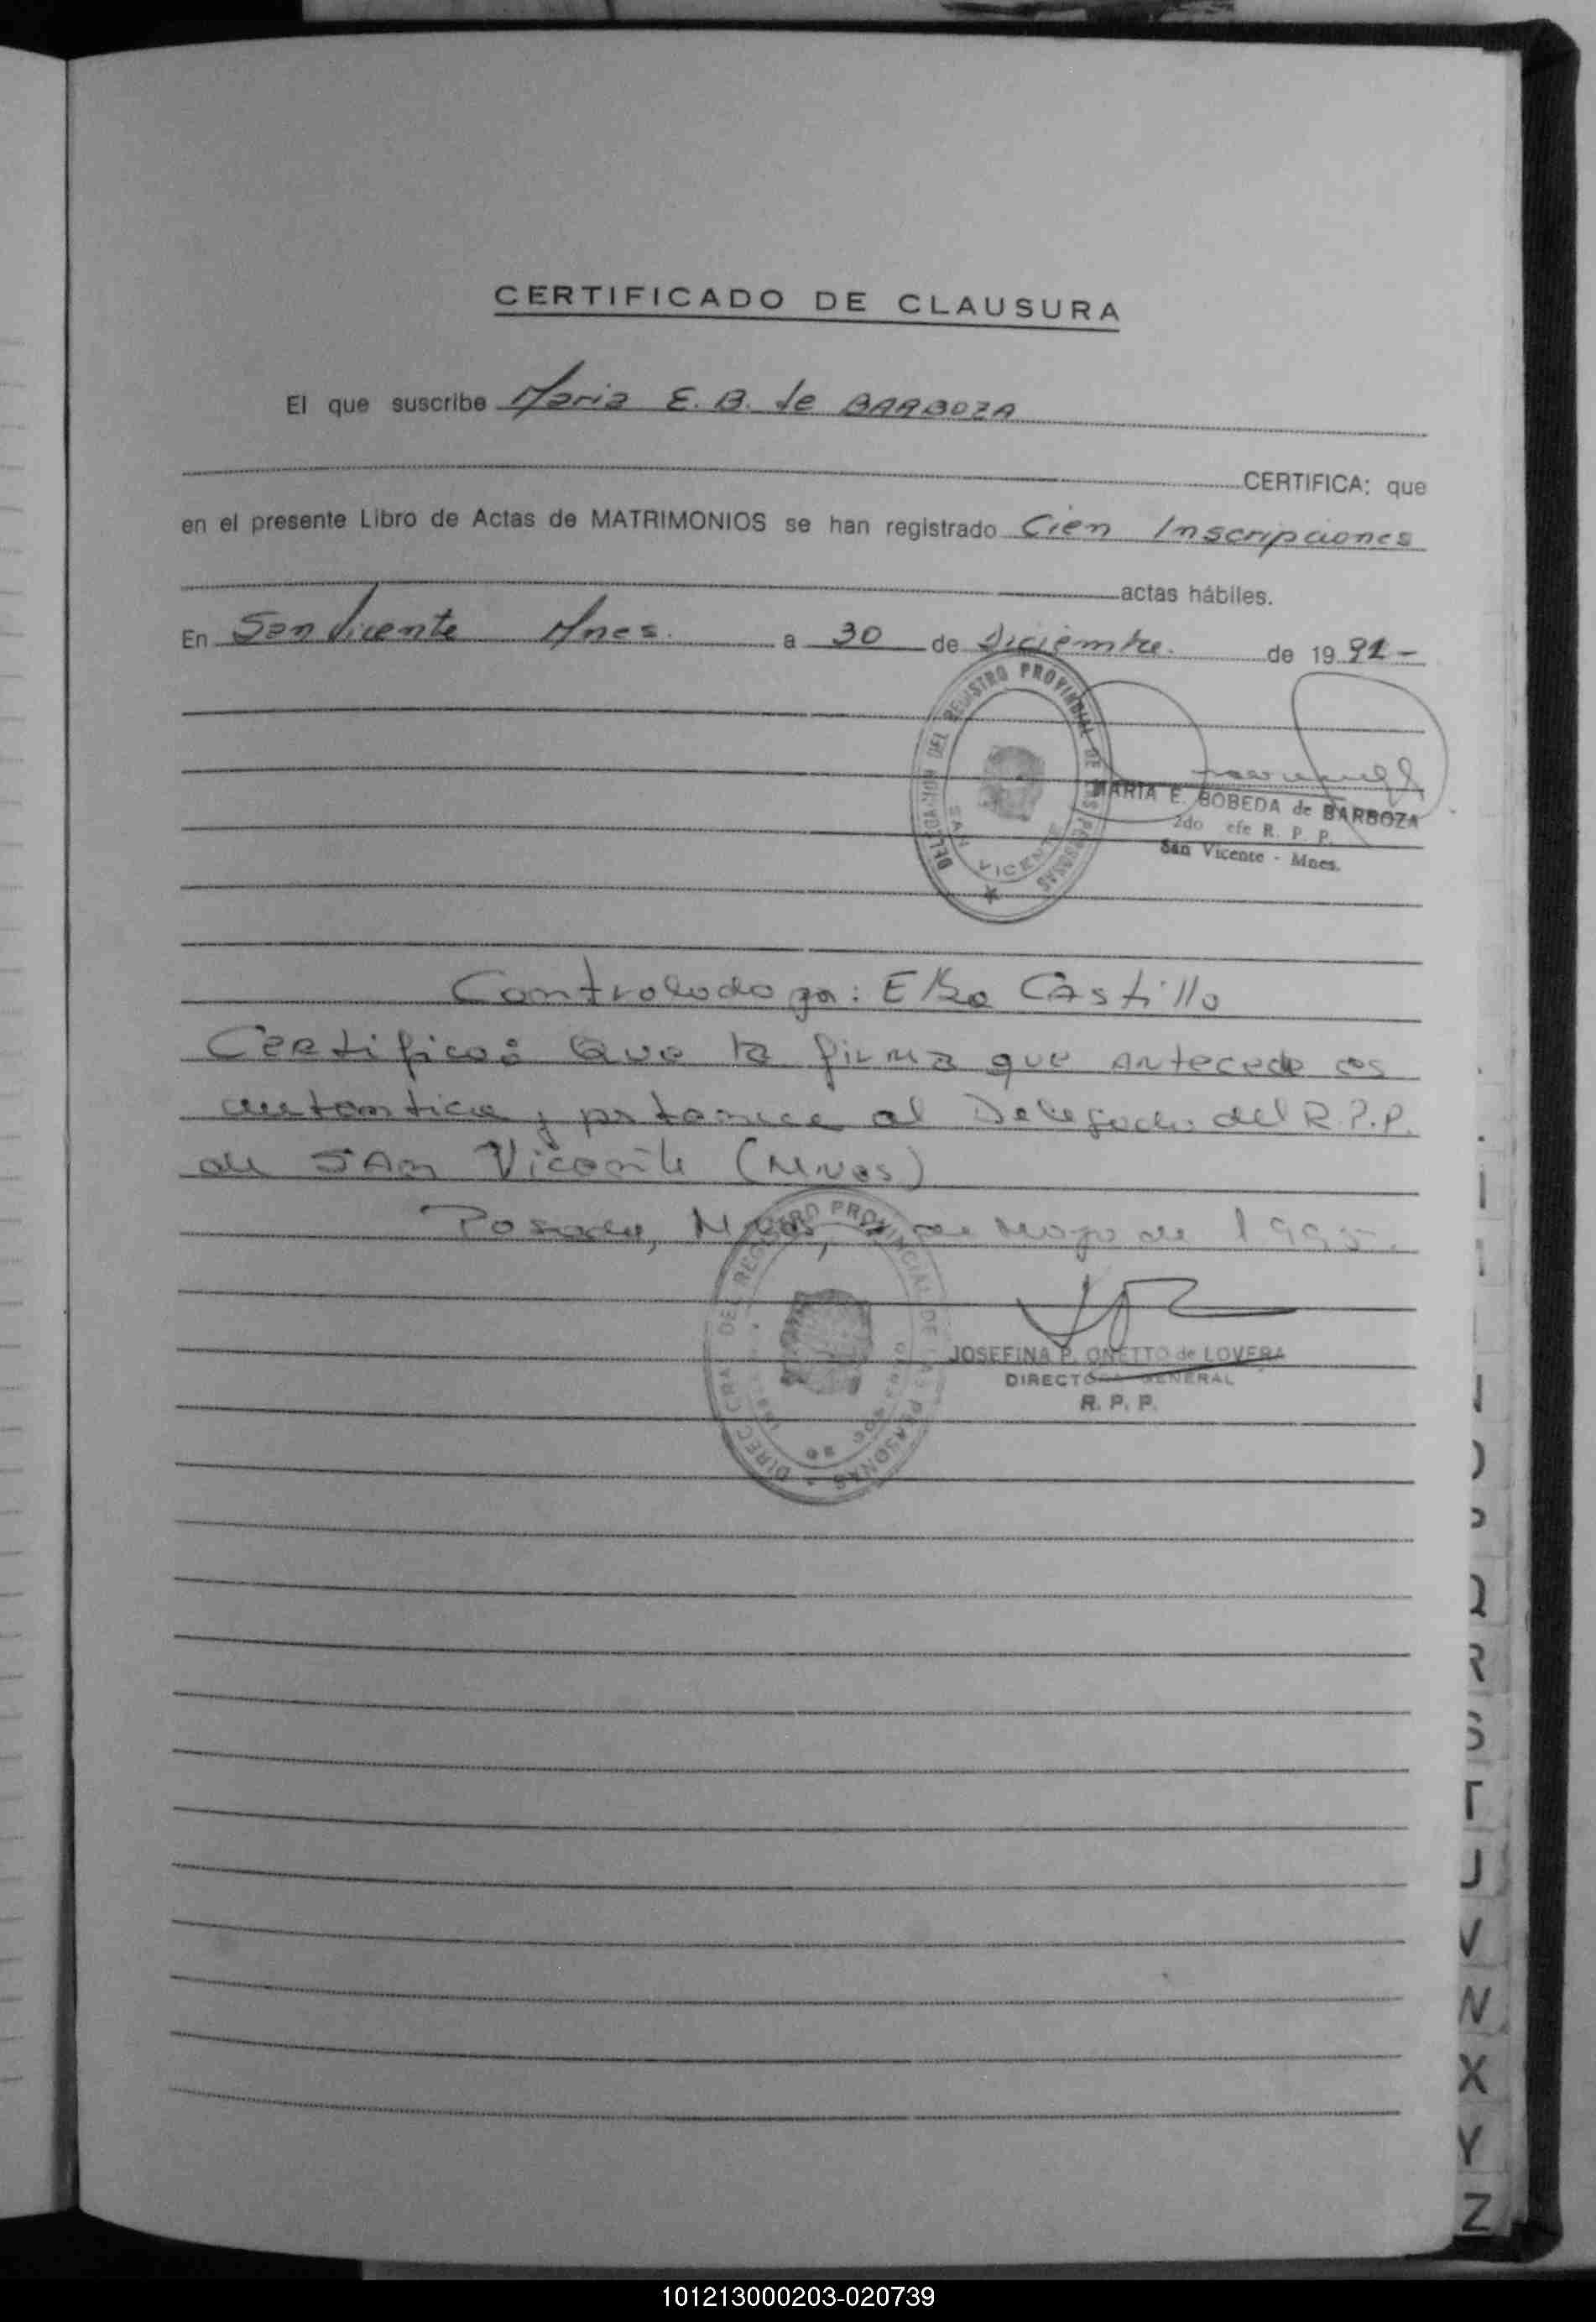 CERTIFICADO DE CLAUSURA
El que suscribe Maria E. B. de BARBOZA
CERTIFICA: que
en el presente Libro de Actas de MATRIMONIOS se han registrado Cien Inscripciones
actas hábiles.
En San Vicente Mnes. a 30 de Diciembre. de 19 91 -
DELEGACION DEL REGISTRO PROVINCIAL DE LAS PERSONAS
SAN VICENTE
MARIA E. BOBEDA de BARBOZA
2do efe R. P. P.
San Vicente - Mnes.
Controlado por: Elsa Castillo
Certifico: Que la firma que antecede es
autentica y pertenece al Delegado del R.P.P.
de SAn Vicente (Mnes)
Posadas, Mnes, de Mayo de 1995.
DIREC GRAL DEL REGISTRO PROVINCIAL DE LAS PERSONAS
JOSEFINA P. ONETTO de LOVERA
DIRECTORA GENERAL
R. P. P.
Q
R
S
T
U
V
X
Y
Z
101213000203-020739